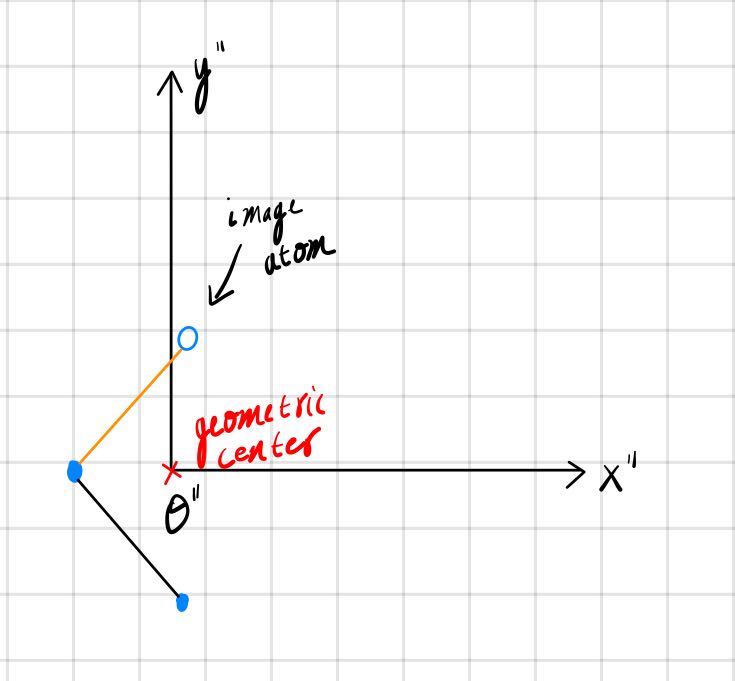 y"
image
atom
geometric
center
x"
O"